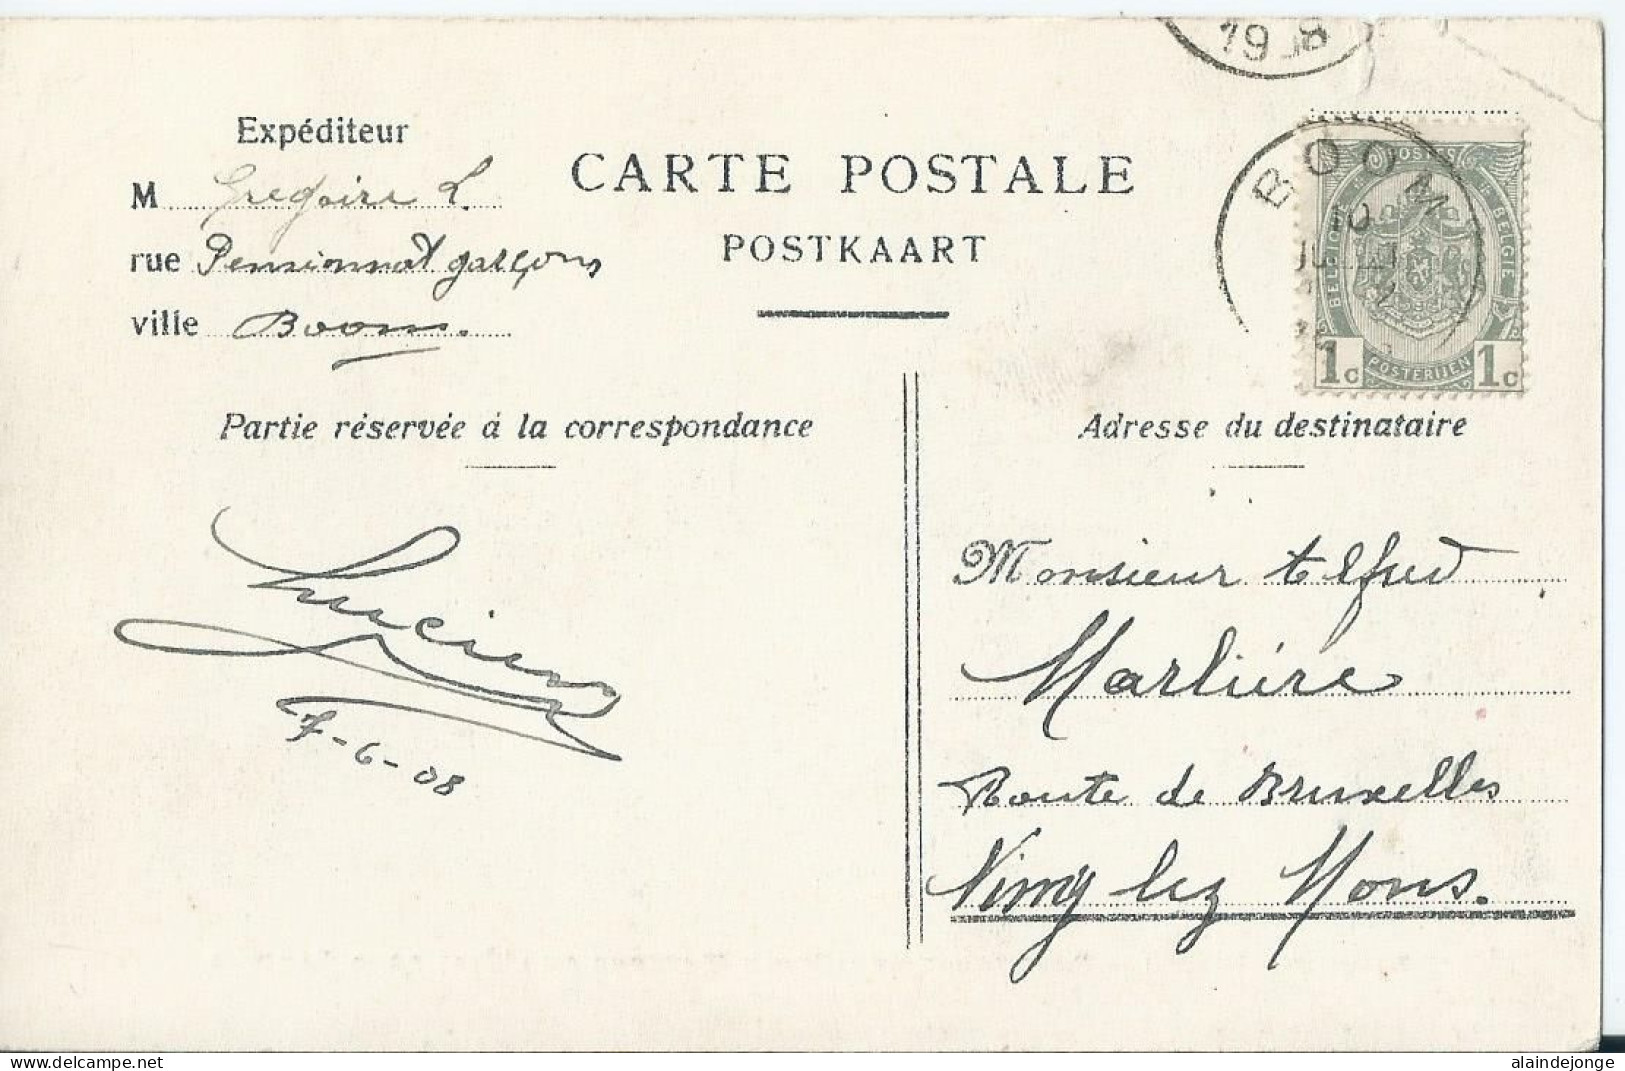 1908
Expéditeur
CARTE POSTALE
POSTKAART
M Gregoire L.
rue Pensionnat garçons
ville Boom.
BOOM
10
JUIN
POSTES
BELGIQUE
BELGIË
1c POSTERIJEN 1c
Partie réservée à la correspondance
Adresse du destinataire
Lucien
7-6-08
Monsieur Alfred
Marlière
Route de Bruxelles
Nimy lez Mons.
alaindejonge